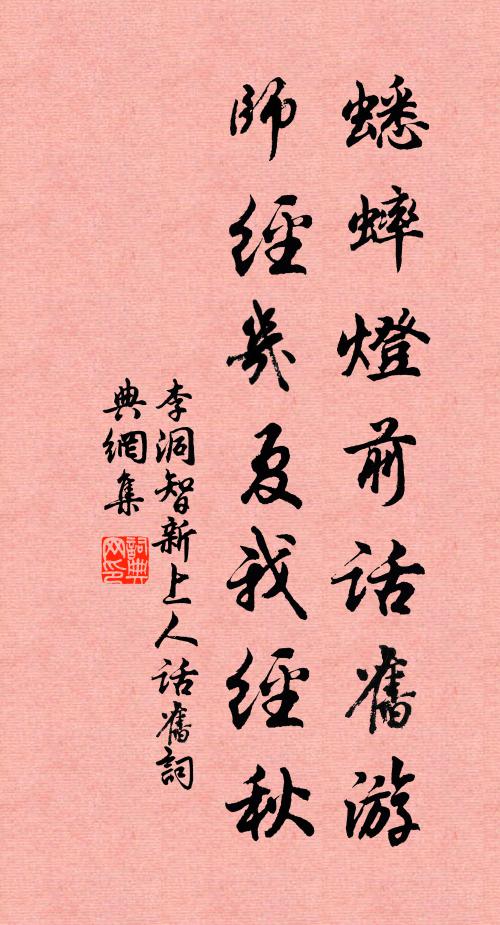 蟋蟀燈前話舊游
師經幾夏我經秋
李洞智新上人話舊詞
典網集
詞典網印